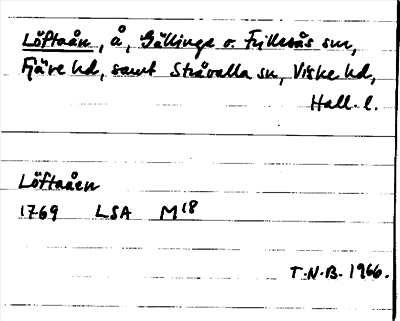 Löftaån, å, Gällinge o. Fjällnäs snr,
Fjäre hd, samt Stråvalla sn, Viske hd,
Hall. l.
Löftaåen
1769 LSA M18
T.N.B. 1966.